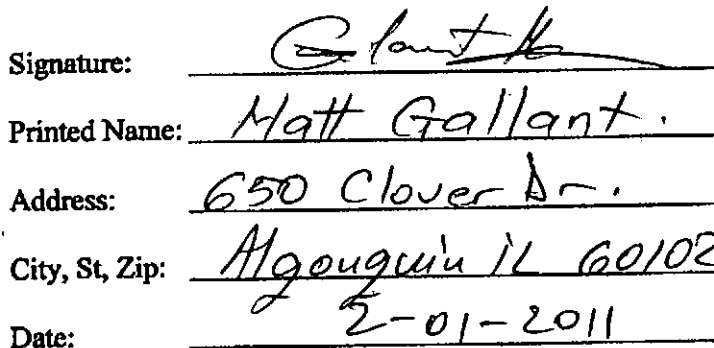 Signature:
Printed Name: Matt Gallant.
Address: 650 Clover Dr.
City, St, Zip: Algouquin IL 60102
Date: 2-01-2011